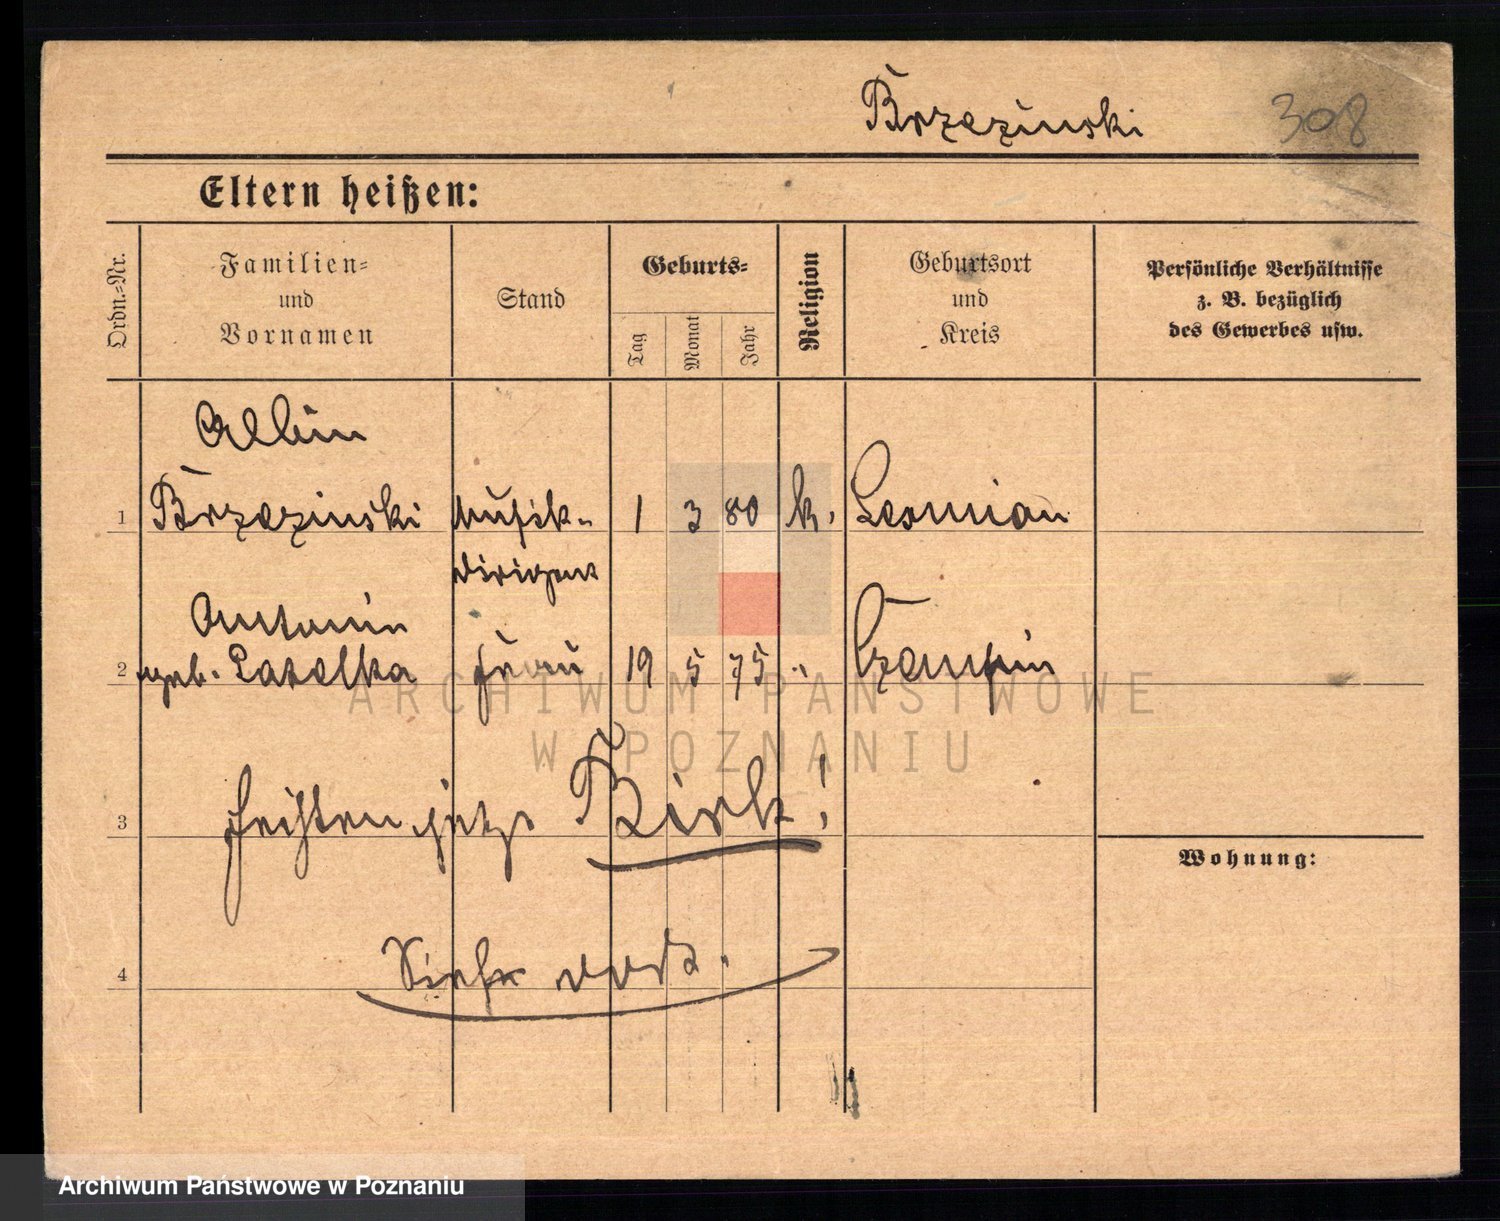 Brzezinski 308
Eltern heißen:
Ordn.=Nr.
Familien=
und
Vornamen
Stand
Geburts=
Tag
Monat
Jahr
Religion
Geburtsort
und
Kreis
Persönliche Verhältnisse
z. B. bezüglich
des Gewerbes usw.
Albin
1 Brzezinski Musik- 1 3 80 k. Lesmian
dirigent
Antonin
2 geb. Frau 19 5 75 " Czempin
3 heißen jetzt Birk!
Wohnung:
4 Siehe dort.
ARCHIWUM PAŃSTWOWE
W POZNANIU
Archiwum Państwowe w Poznaniu